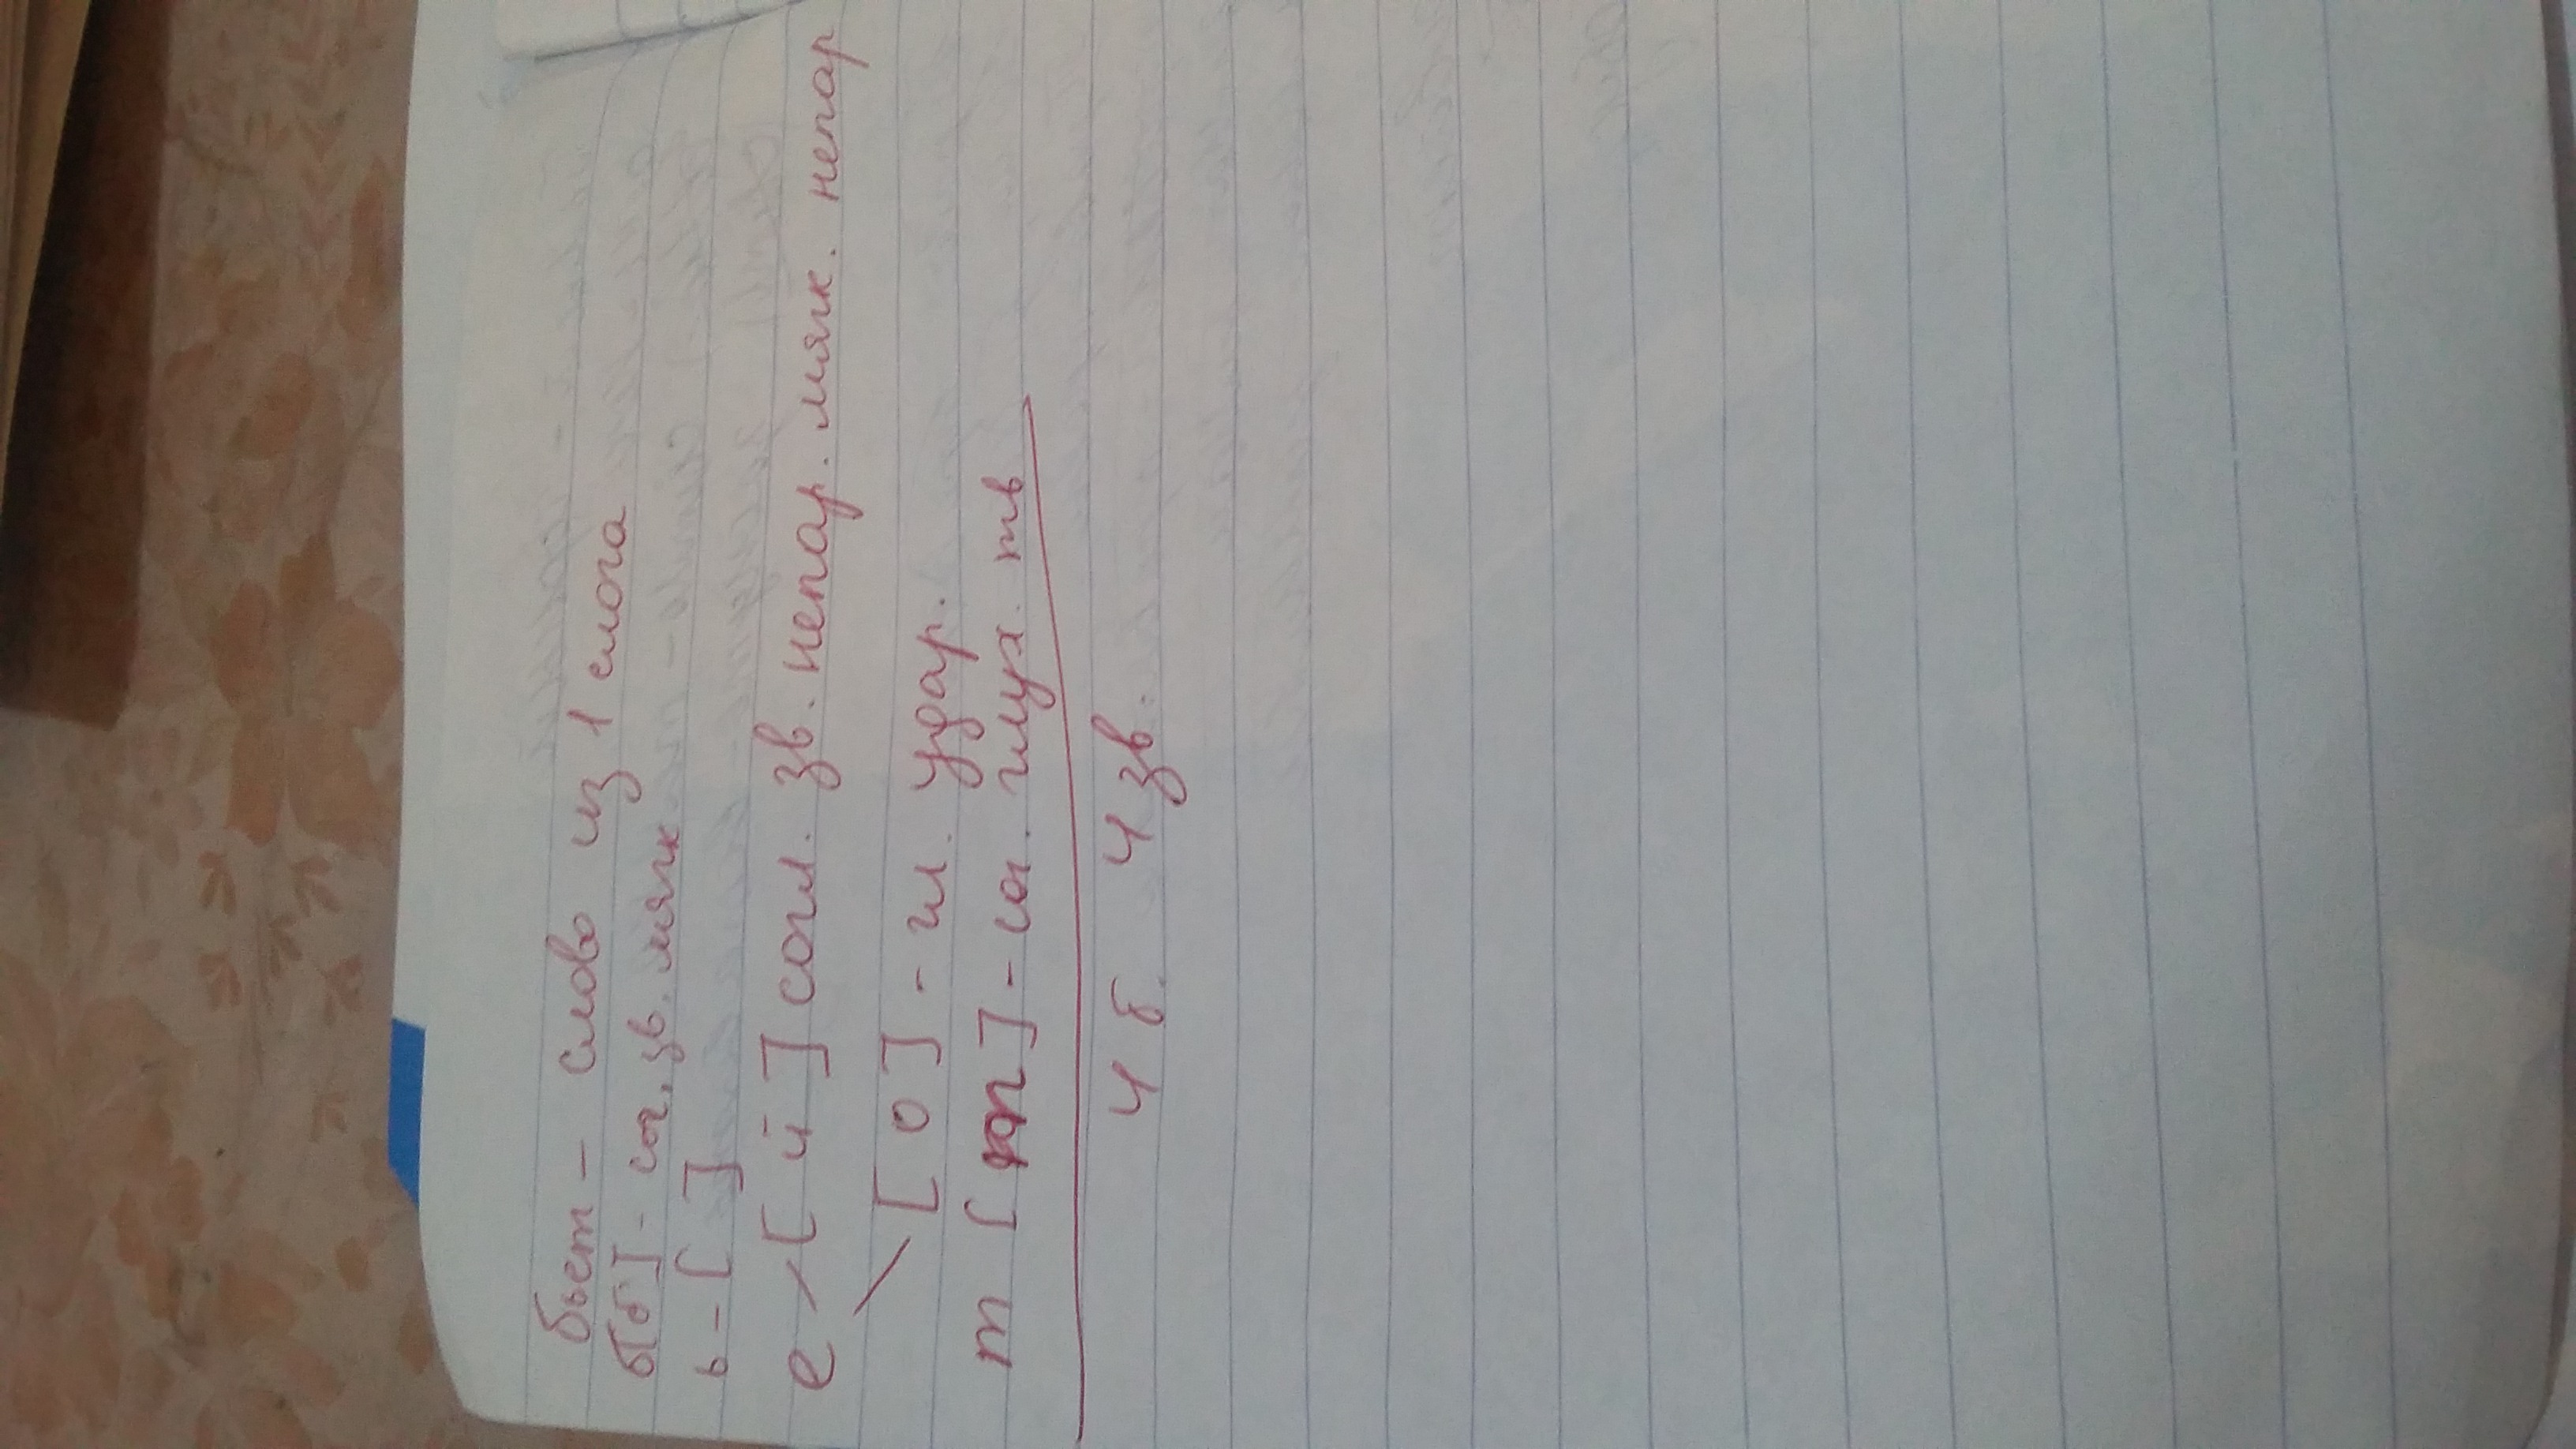 бьет - слово из 1 слога
б[б'] - сог, зв. мягк
ь - [ ]
е [й] согл. зв. непар. мягк. непар
[о] - гл. удар.
т [т] - сог. глух. тв
4 б. 4 зв.